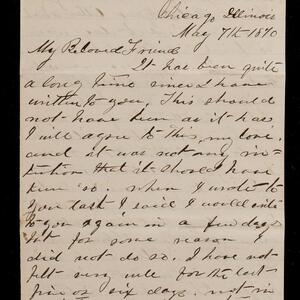 Chicago, Illinois
May 7th 1870
My Beloved Friend
It has been quite
a long time since I have
written to you, This should
not have been as it has
I will agree to this, my love,
and it was not any in-
tention that it should have
been so. when I wrote to
you last I said I would write
to you again in a few days
but for some reason I
did not do so. I have not
felt very well for the last
five or six days. not in